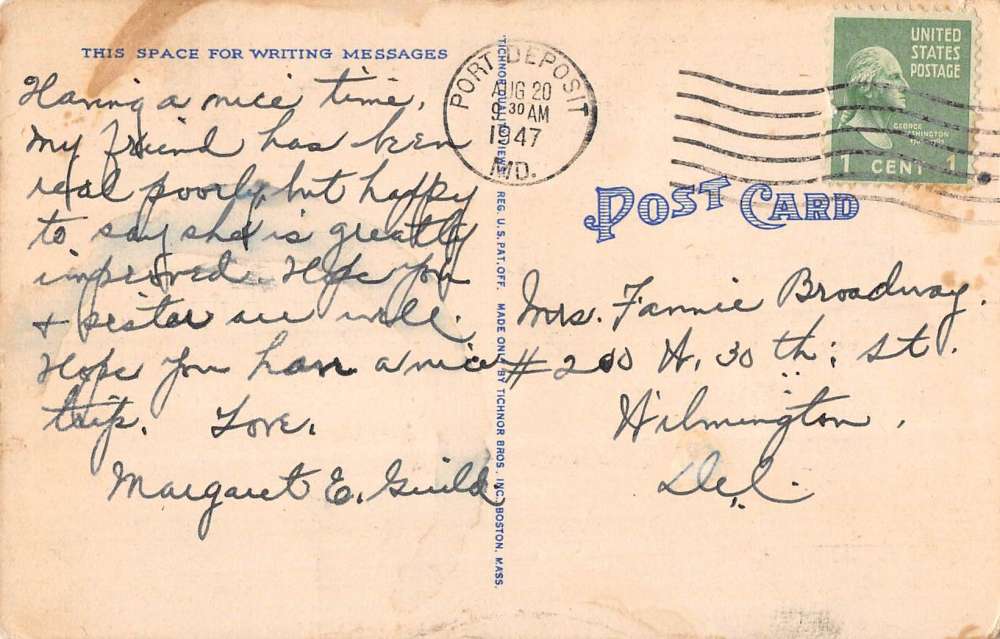 THIS SPACE FOR WRITING MESSAGES
Having a nice time.
My friend has been
real poorly, but happy
to say she is greatly
improved. Hope you
& sister are well.
Hope you have a nice
trip. Love,
Margaret E. Guild
TICHNOR QUALITY VIEWS REG. U.S. PAT. OFF. MADE ONLY BY TICHNOR BROS. INC. BOSTON, MASS.
PORT DEPOSIT
AUG 20
9 30 AM
1947
MD.
UNITED
STATES
POSTAGE
GEORGE
WASHINGTON
1 CENT 1
POST CARD
Mrs. Fannie Broadway.
#200 W. 30 th: St.
Wilmington,
Del.